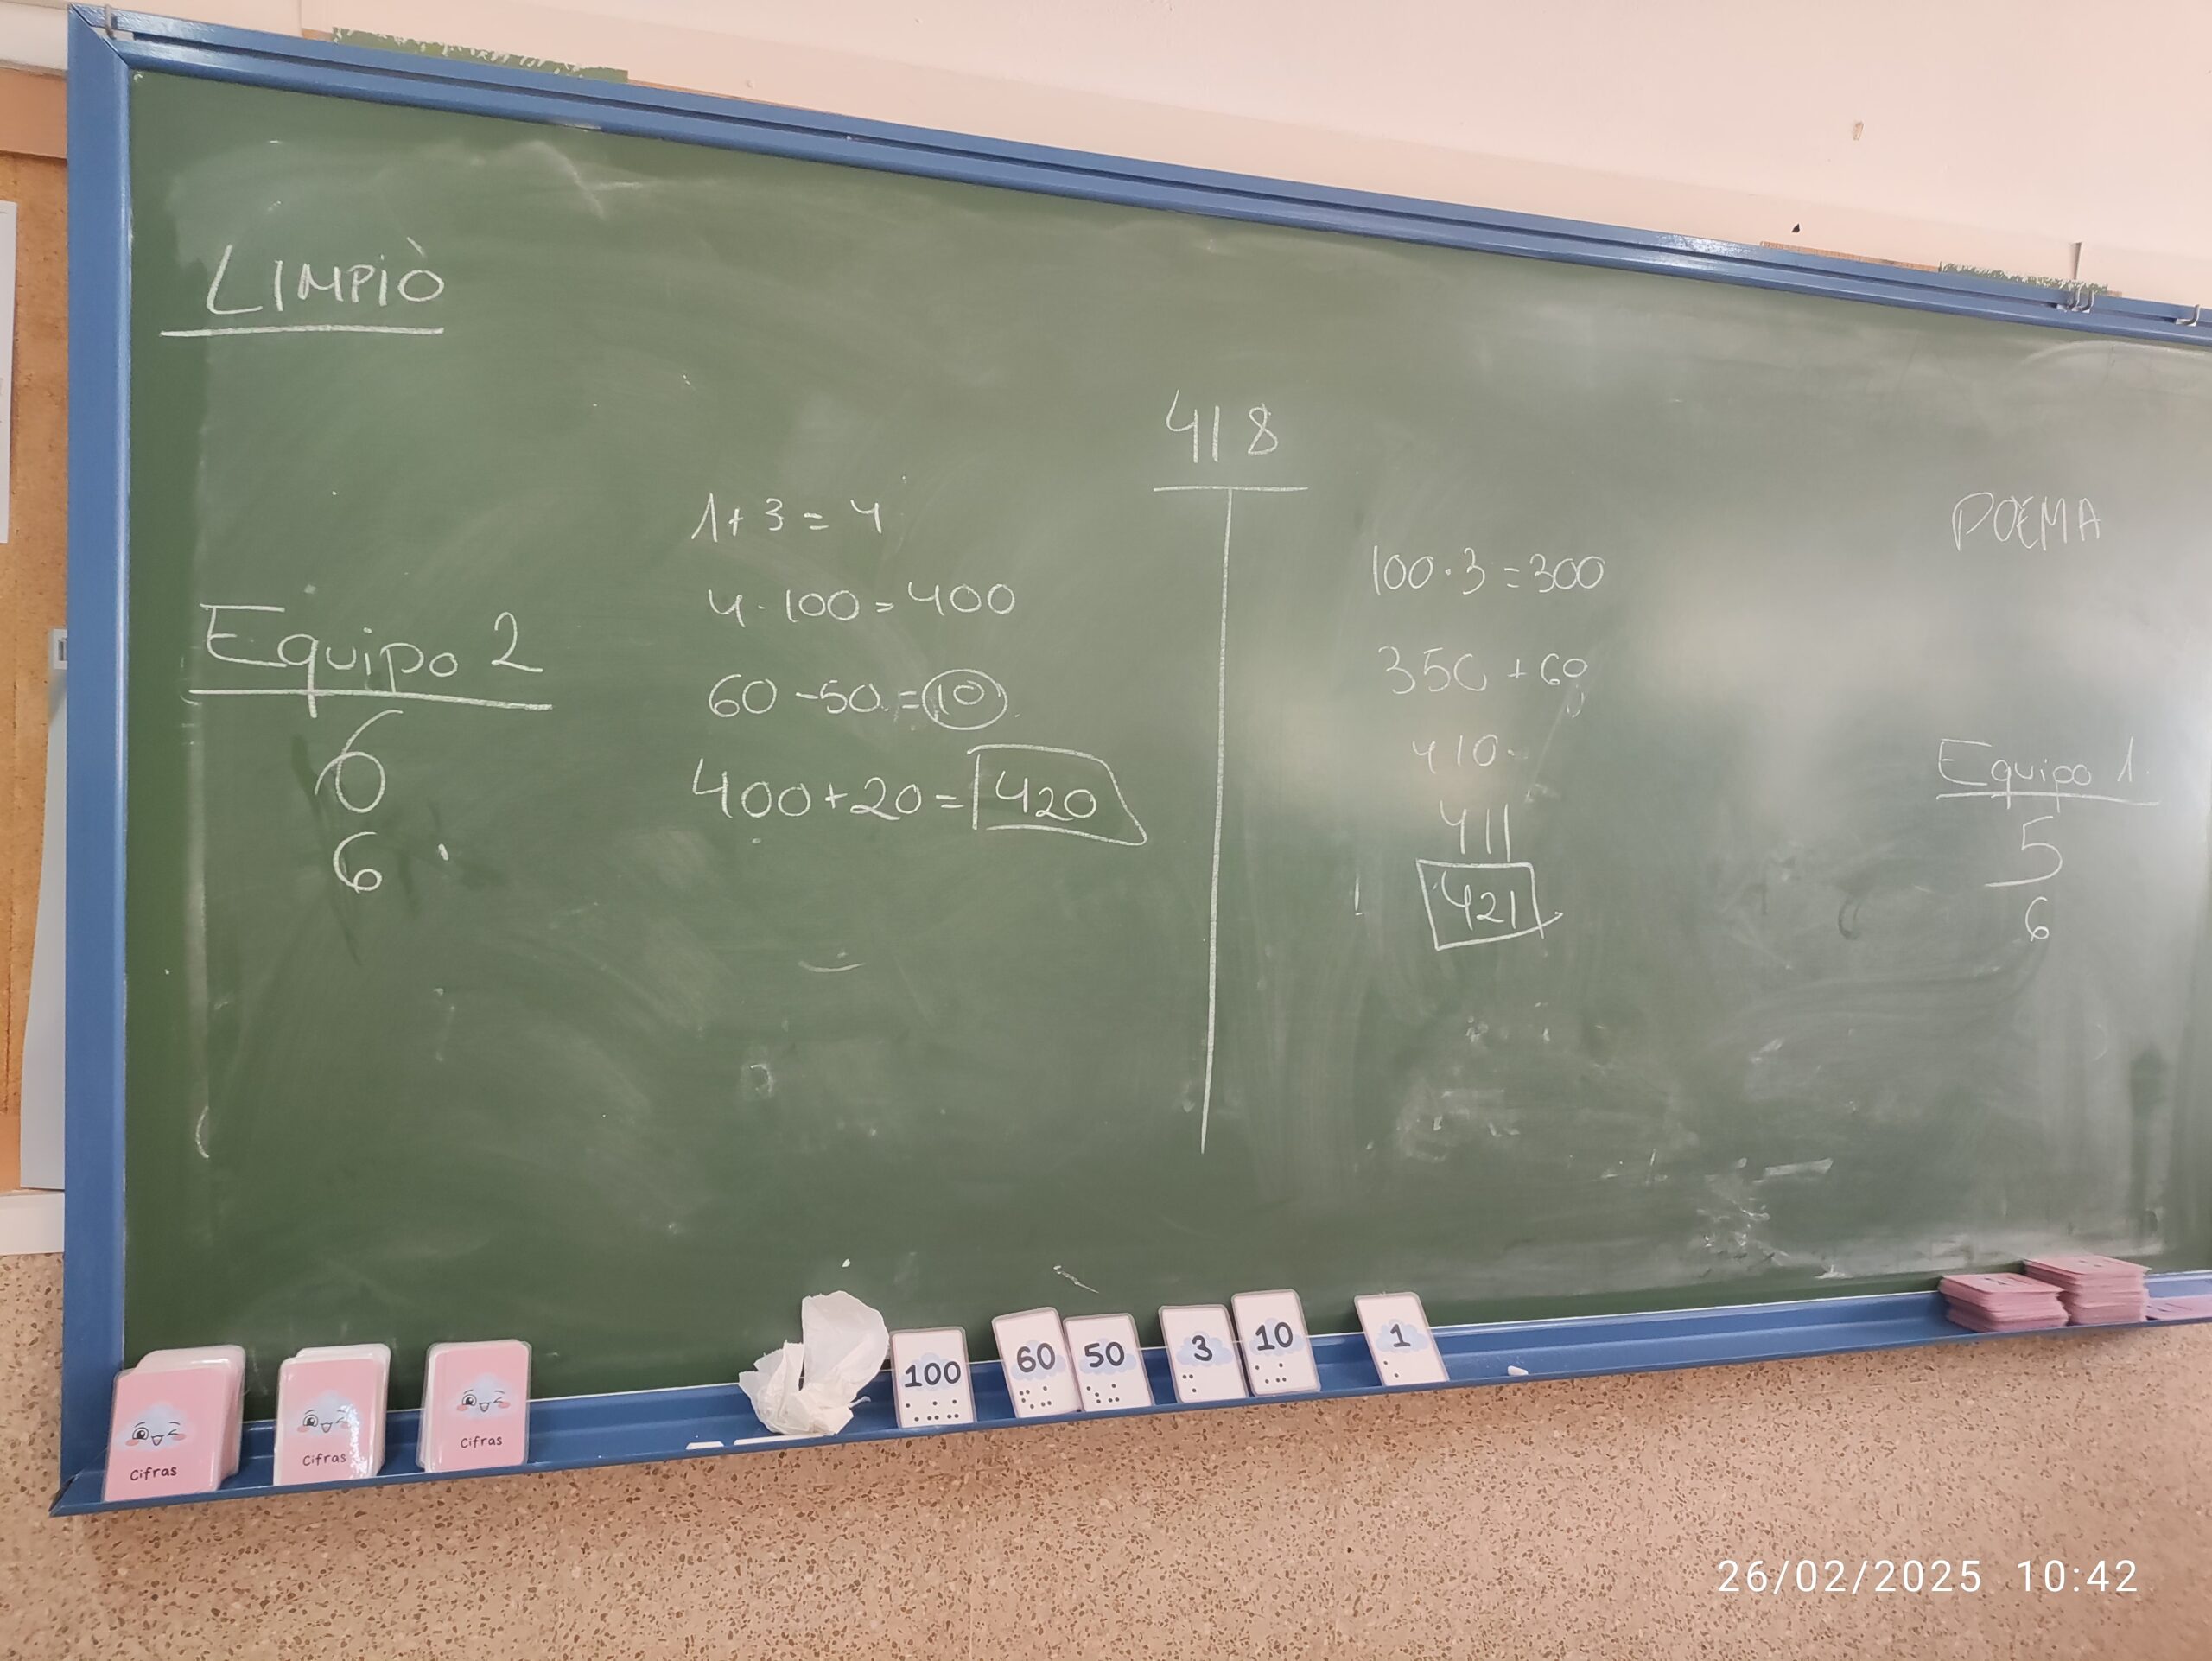 LIMPIÒ
418
Equipo 2
6
6
1+3=4
4·100=400
60-50=10
400+20=420
100·3=300
350+60
410
411
421
POEMA
Equipo 1
5
6
Cifras
Cifras
Cifras
100
60
50
3
10
1
26/02/2025 10:42